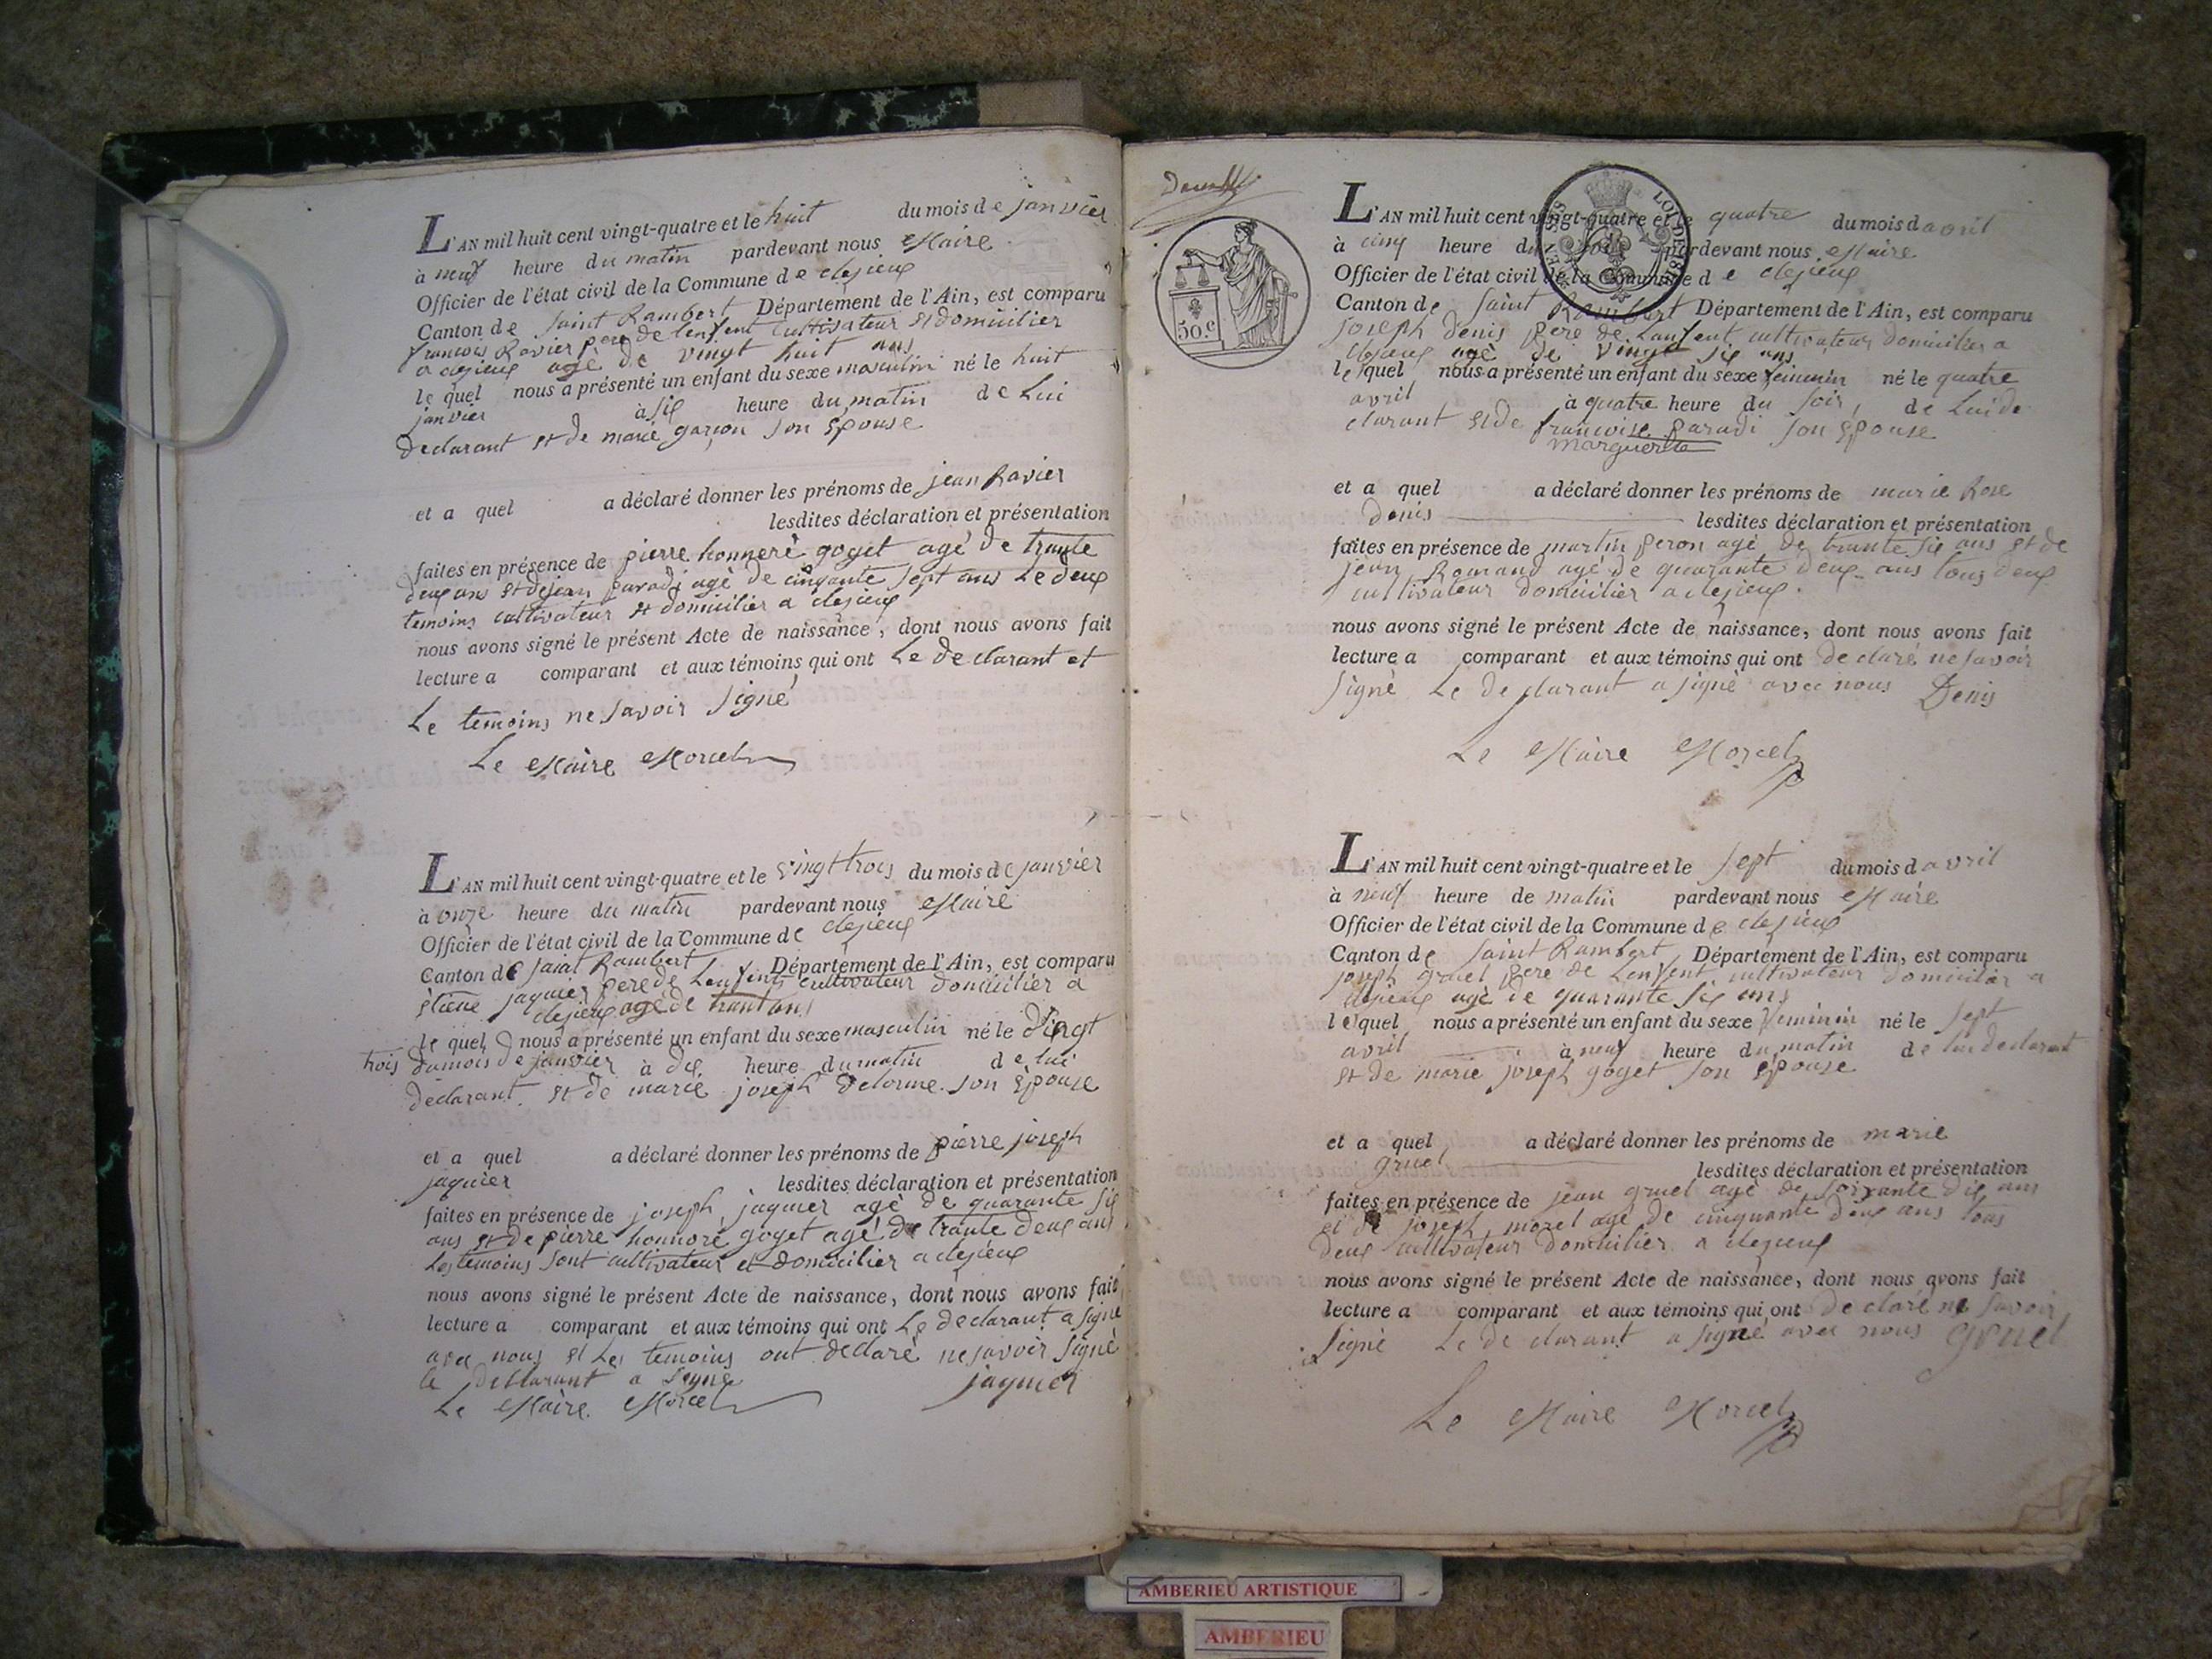 L'AN mil huit cent vingt-quatre et le huit du mois de janvier
à neuf heure du matin pardevant nous Maire
Officier de l'état civil de la Commune de clezieux
Canton de saint Rambert Département de l'Ain, est comparu
francois Ravier pere de lenfent cultivateur et domicilier
a clezieux agé de vingt huit ans
le quel nous a présenté un enfant du sexe masculin né le huit
janvier à six heure du matin de Lui
declarant et de marie garçon son Epouse
et a quel a déclaré donner les prénoms de jean Ravier
lesdites déclaration et présentation
faites en présence de pierre honneré goyet agé de trante
deux ans et dejean paradi agé de cinqante sept ans Le deux
temoins cultivateur et domicilier a clezieux
nous avons signé le présent Acte de naissance, dont nous avons fait
lecture a comparant et aux témoins qui ont Le declarant et
Le temoins ne savoir signé
Le Maire Morcel
L'AN mil huit cent vingt-quatre et le vingt trois du mois de janvier
à onze heure du matin pardevant nous Maire
Officier de l'état civil de la Commune de clezieux
Canton de saint Rambert Département de l'Ain, est comparu
Etiene jaquier pere de Lenfent cultivateur domicilier a
clezieux agé de trant ans
le quel nous a présenté un enfant du sexe masculin né le vingt
trois du mois de janvier à dix heure du matin de lui
declarant et de marie joseph Delorme son Epouse
et a quel a déclaré donner les prénoms de pierre joseph
jaquier lesdites déclaration et présentation
faites en présence de joseph jaquier agé de quarante six
ans et de pierre honnoré goyet agé de trante deux ans
Les temoins sont cultivateur et domicilier a clezieux
nous avons signé le présent Acte de naissance, dont nous avons fait
lecture a comparant et aux témoins qui ont Le declarant a signé
avec nous et Les temoins ont declaré ne savoir signé
le declarant a signé jaquier
Le Maire Morcel
50 c
LOI DE 1816
L'AN mil huit cent vingt-quatre et le quatre du mois d avril
à cinq heure du soir pardevant nous Maire
Officier de l'état civil de la Commune de clezieux
Canton de saint Rambert Département de l'Ain, est comparu
joseph denis pere de Lanfent cultivateur domicilier a
clezieux agé de vingt six ans
le quel nous a présenté un enfant du sexe feminin né le quatre
avril à quatre heure du soir, de Lui de
clarant et de francoise paradi son Epouse
marguerite
et a quel a déclaré donner les prénoms de marie Rose
denis lesdites déclaration et présentation
faites en présence de martin peron agé de trante six ans et de
jean Romand agé de quarante deux ans tous deux
cultivateur domicilier a clezieux.
nous avons signé le présent Acte de naissance, dont nous avons fait
lecture a comparant et aux témoins qui ont declaré ne savoir
signé Le declarant a signé avec nous Denis
Le Maire Morcel
L'AN mil huit cent vingt-quatre et le sept du mois d avril
à neuf heure de matin pardevant nous Maire
Officier de l'état civil de la Commune de clezieux
Canton de saint Rambert Département de l'Ain, est comparu
joseph gruel pere de Lenfent cultivateur domicilier a
clezieux agé de quarante six ans
le quel nous a présenté un enfant du sexe feminin né le sept
avril à neuf heure du matin de lui declarant
et de marie joseph goyet son Epouse
et a quel a déclaré donner les prénoms de marie
gruel lesdites déclaration et présentation
faites en présence de jean gruel agé de soixante dix ans
et de joseph morel agé de cinquante deux ans tous
deux cultivateur domicilier a clezieux
nous avons signé le présent Acte de naissance, dont nous avons fait
lecture a comparant et aux témoins qui ont declaré ne savoir
signé Le declarant a signé avec nous gruel
Le Maire Morcel
AMBERIEU ARTISTIQUE
AMBERIEU